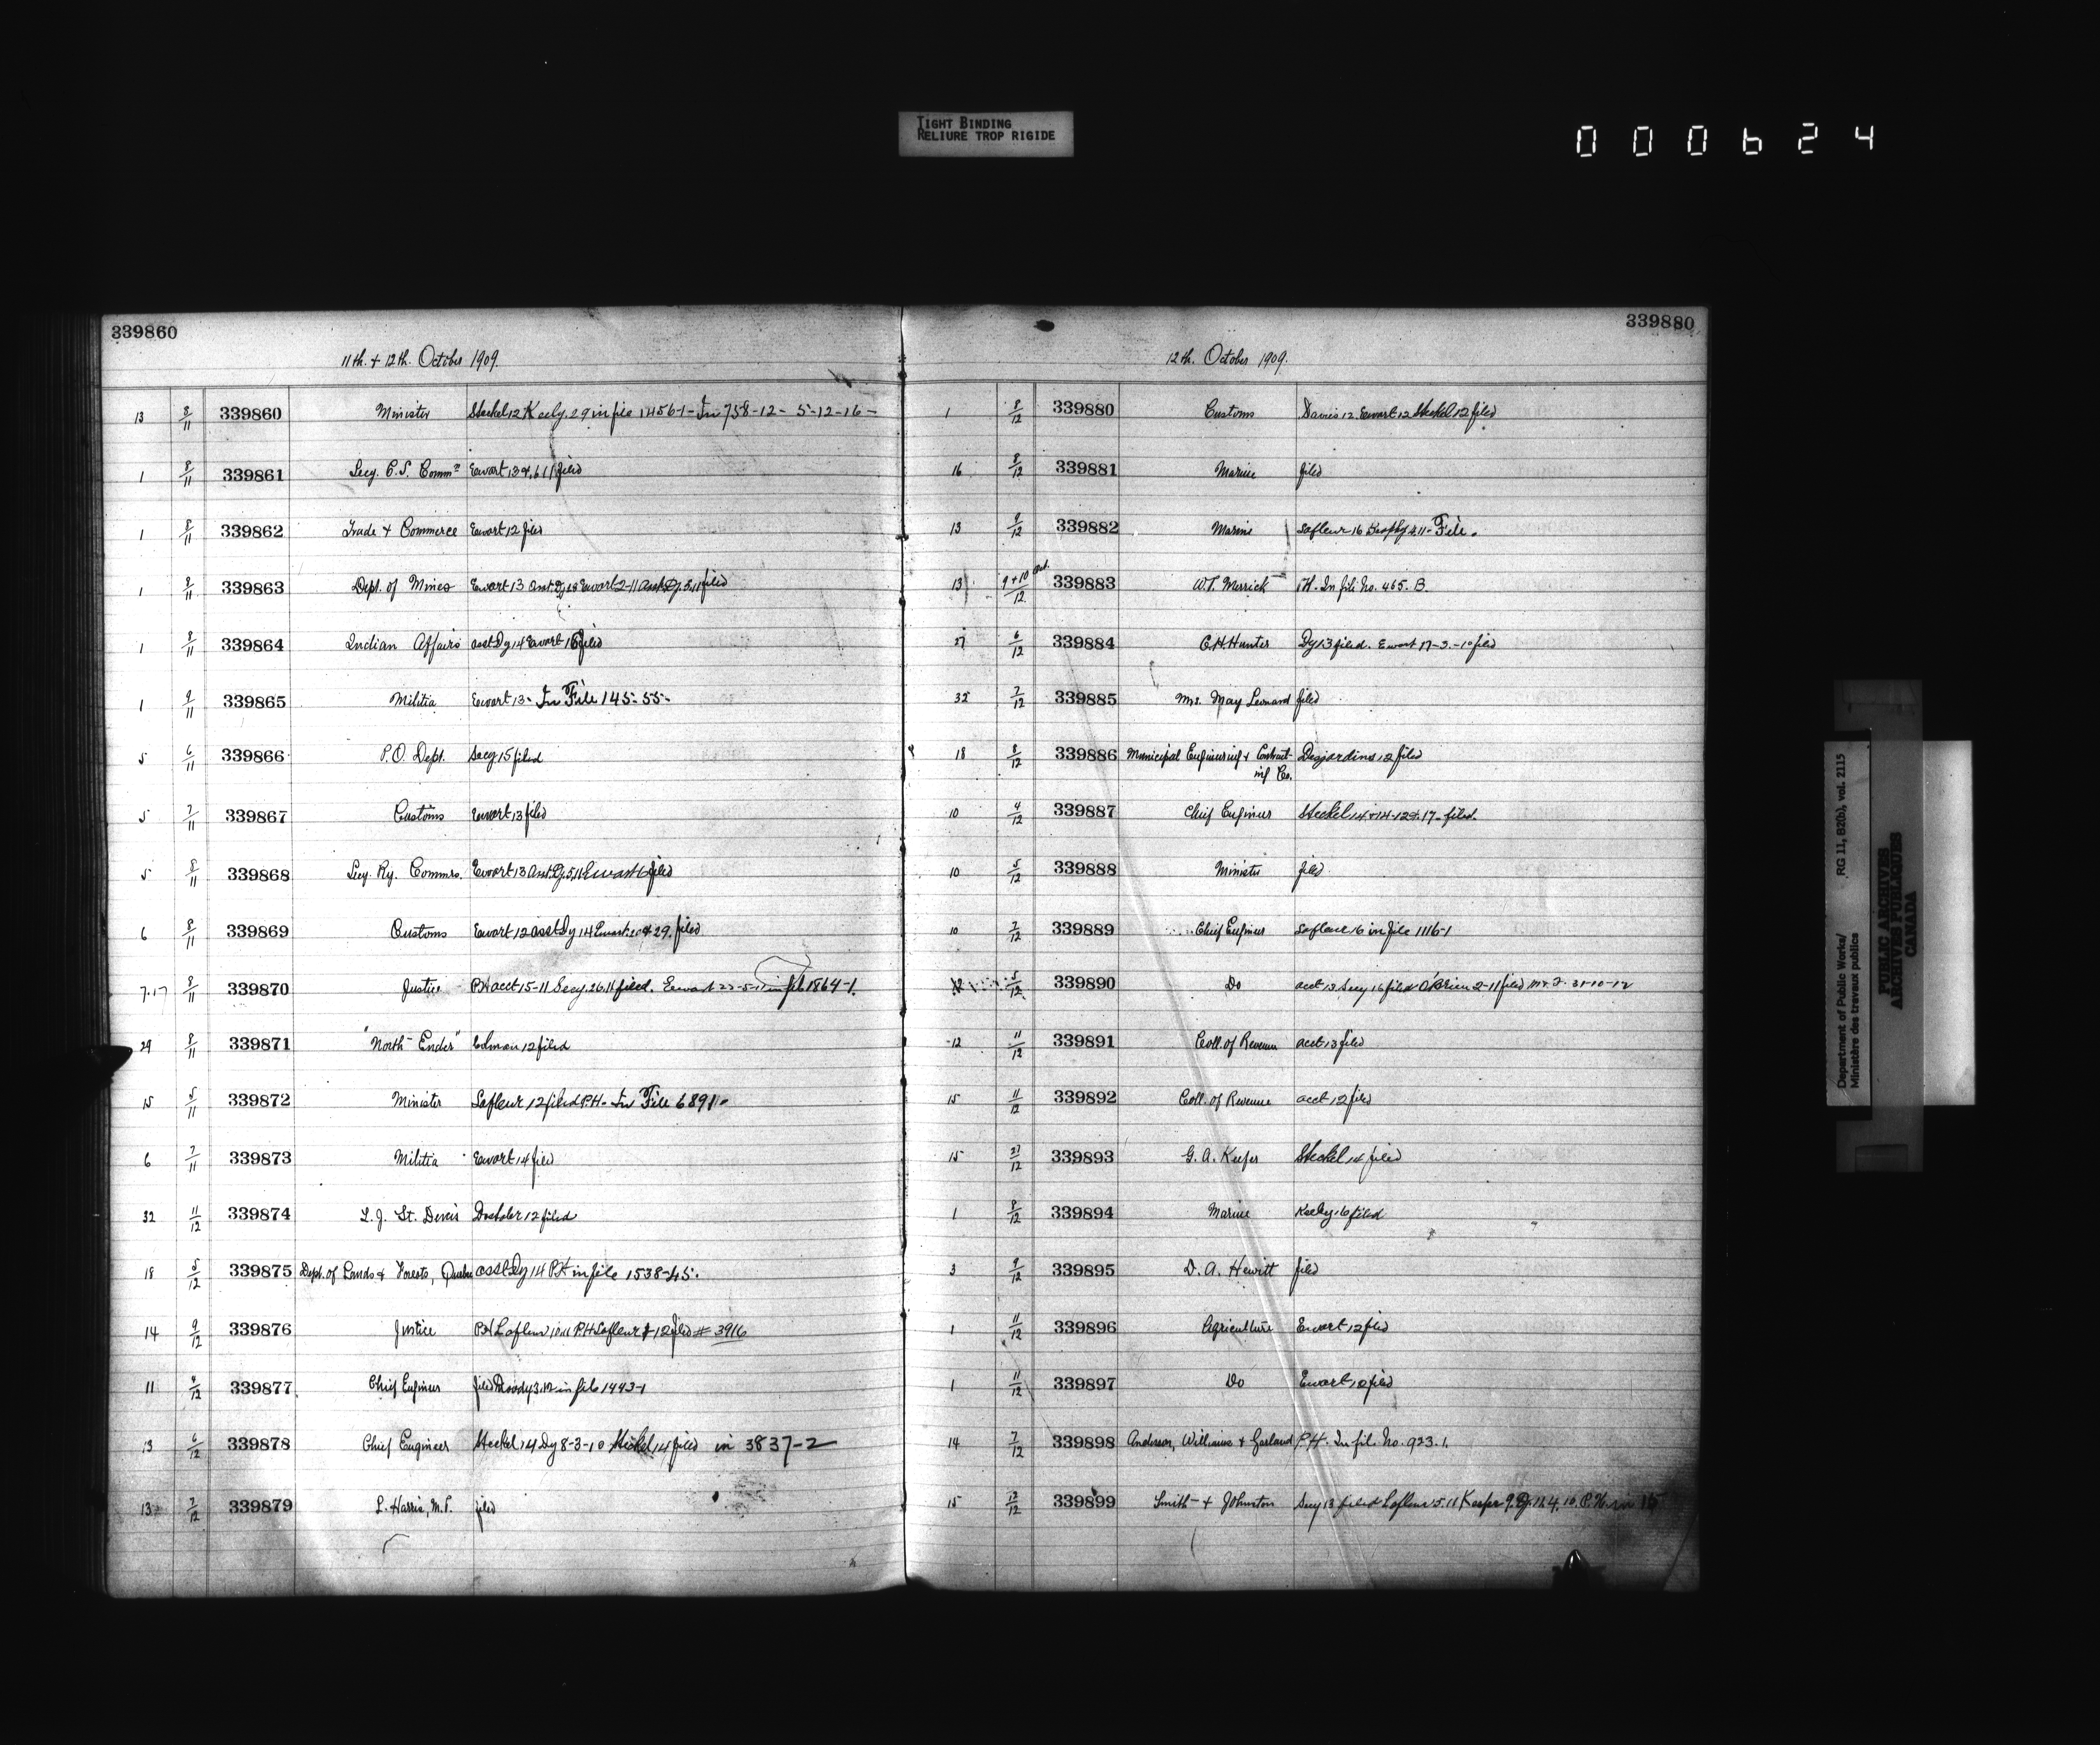 TIGHT BINDING
RELIURE TROP RIGIDE
000624
339860
11th. + 12th. October 1909.
13 8/11 339860 Minister Steckel 12 Keely 29 in file 1456-1- In 758-12- 5-12-16-
1 8/11 339861 Secy. C.S. Commn Ewart 13 filed
1 8/11 339862 Trade + Commerce Ewart 12 filed
1 8/11 339863 Dept. of Mines Ewart 13 Asst. Dy Ewart 2-11 Asst Dy. 5.11 filed
1 8/11 339864 Indian Affairs asst Dy 14 Ewart 16 filed
1 9/11 339865 Militia Ewart 13- In File 145-55-
5 6/11 339866 P.O. Dept. Secy 15 filed
5 7/11 339867 Customs Ewart 13 filed
5 8/11 339868 Secy. Ry. Commrs. Ewart 13 Asst. Dy. 5.11 Ewart 6 filed
6 8/11 339869 Customs Ewart 12 asst Dy 14 Ewart 29. filed
7.17 8/11 339870 Justice PH acct 15-11 Secy. 26.11 filed. Ewart 22-5-11 in file 1864-1.
29 8/11 339871 "North Ender" Colman 12 filed
15 5/11 339872 Minister Lafleur 12 filed P.H- In File 6891-
6 7/11 339873 Militia Ewart 14 filed
32 11/12 339874 L. J. St. Denis 12 filed
18 5/12 339875 Dept. of Lands & Forests, Quebec asst Dy 14 P.H in file 1538-45.
14 9/12 339876 Justice P.H Lafleur 10.11 P.H Lafleur 12 filed # 3916
11 4/12 339877 Chief Engineer filed Moody 3.12 in file 1443-1
13 6/12 339878 Chief Engineer Steckel 14 Dy 8-3-10 Steckel 14 filed in 3837-2
13 7/12 339879 L. Harris, M.P. filed
339880
12th. October 1909.
1 8/12 339880 Customs Davis 12. Ewart 12 Steckel 12 filed
16 8/12 339881 Marine filed
13 9/12 339882 Marine Lafleur 16 Brophy 2.11- File.
13 9+10 Oct./12 339883 W.T. Merrick P.H. In file No. 465. B.
27 6/12 339884 C.H. Hunter Dy 13 filed. Ewart 17-3-10 filed
32 7/12 339885 Mrs. May Leonard filed
18 8/12 339886 Municipal Engineering & Contract- Desjardins 12 filed
ing Co.
10 4/12 339887 Chief Engineer Steckel 14 & 14-12 & 17- filed.
10 5/12 339888 Minister filed
10 7/12 339889 Chief Engineer Lafleur 16 in file 1116-1
12 5/12 339890 Do acct 13 Secy 16 filed O'Brien 2-11 filed 31-10-12
12 11/12 339891 Coll. of Revenue acct 13 filed
15 11/12 339892 Coll. of Revenue acct 12 filed
15 27/12 339893 G. A. Keefer Steckel 14 filed
1 8/12 339894 Marine Keeley 16 filed
3 9/12 339895 D. A. Hewitt filed
1 11/12 339896 Agriculture Ewart 12 filed
1 11/12 339897 Do Ewart 12 filed
14 7/12 339898 Anderson, Williams & Garland P.H. In file No. 923.1.
15 12/12 339899 Smith + Johnston Secy 13 filed Lafleur 5.11 Keefer 9. Dy. 11.4.10. P.H. in 15
Department of Public Works/ RG 11, B2(b), vol. 2115
Ministère des travaux publics
PUBLIC ARCHIVES
ARCHIVES PUBLIQUES
CANADA